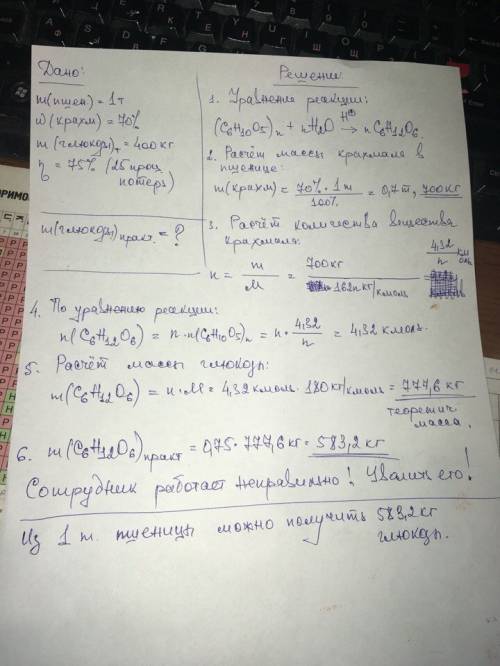 Дано:
m(пшен) = 1т
ω(крахм) = 70%
m(глюкозы)т = 400 кг
η = 75% (25 проц
потерь)
m(глюкозы)практ. = ?
Решение
1. Уравнение реакции:
(C6H10O5)n + nH2O →H⊕ n C6H12O6.
2. Расчёт массы крахмала в
пшенице:
m(крахм) = 70% · 1т / 100% = 0,7 т, 700 кг
3. Расчёт количества вещества
крахмала:
n = m / M = 700 кг / 162n кг/кмоль = 4,32 / n кмоль
4. По уравнению реакции:
n(C6H12O6) = n · n(C6H10O5)n = n · 4,32 / n = 4,32 кмоль.
5. Расчёт массы глюкозы:
m(C6H12O6) = n · M = 4,32 кмоль · 180 кг/кмоль = 777,6 кг
теоретич.
масса.
6. m(C6H12O6)практ = 0,75 · 777,6 кг = 583,2 кг
Сотрудник работает неправильно! Увалить его!
Из 1 т. пшеницы можно получить 583,2 кг
глюкозы.